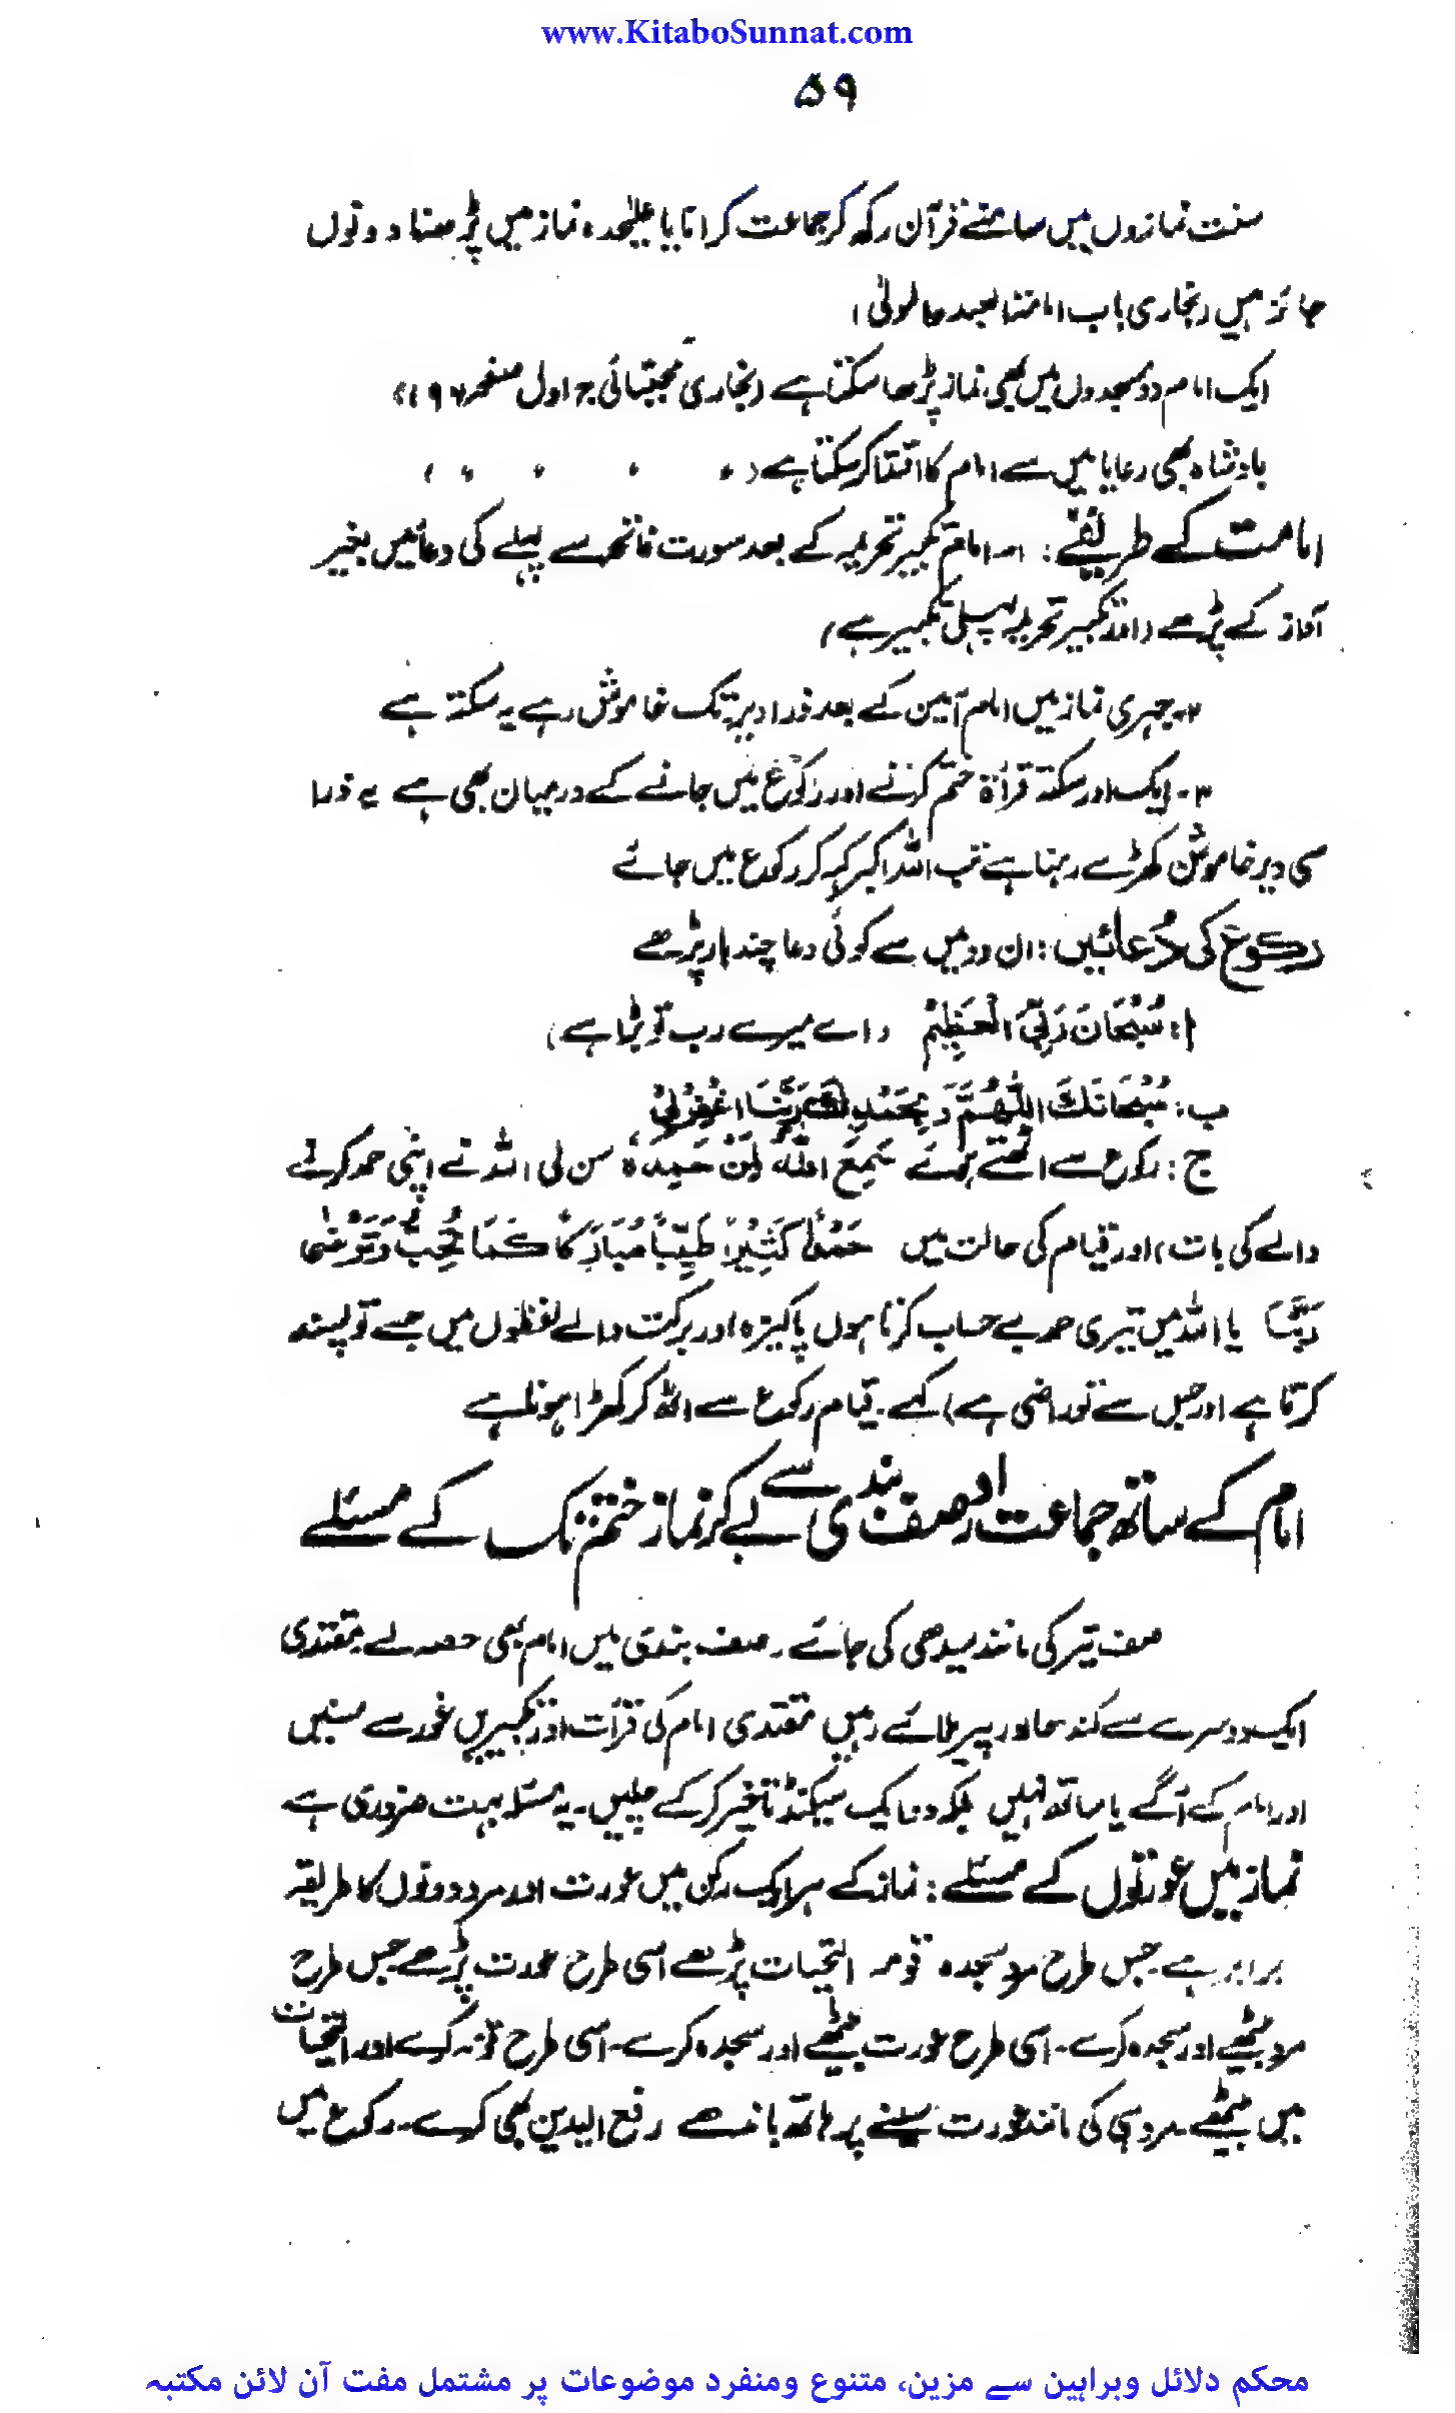 www.KitaboSunnat.com
۵۹
سنت نمازوں میں سامنے قرآن رکھ کر جماعت کرانا یا علیٰحدہ نماز میں پڑھنا دونوں
جائز ہیں (بخاری باب امامتہ العبد والمولیٰ)
ایک امام دو مسجدوں میں بھی نماز پڑھا سکتا ہے (بخاری مجتبائی ج اول صفحہ
بادشاہ بھی رعایا میں سے امام کا اقتدا کر سکتا ہے (
امامت کے طریقے: ۱۔ امام تکبیر تحریمہ کے بعد سورت فاتحہ سے پہلے کی دعائیں بغیر
آواز کے پڑھے (اور تکبیر تحریمہ پہلی تکبیر ہے)
۲۔ جہری نماز میں امام آمین کے بعد ذرا دیر تک خاموش رہے یہ سکتہ ہے
۳۔ ایک اور سکتہ قرأۃ ختم کرنے اور رکوع میں جانے کے درمیان بھی ہے یہ ذرا
سی دیر خاموش کھڑے رہنا ہے تب اللہ اکبر کہہ کر رکوع میں جائے
رکوع کی دُعائیں: ان دو میں سے کوئی دعا چند بار پڑھے
ا: سُبْحَانَ رَبِّیَ الْعَظِیْمُ (اے میرے رب تو بڑا ہے)
ب: سُبْحَانَكَ اللّٰهُمَّ وَبِحَمْدِكَ رَبَّنَا اغْفِرْلِیْ
ج: رکوع سے اٹھتے ہوئے سَمِعَ اللّٰهُ لِمَنْ حَمِدَهٗ سن لی اللہ نے اپنی حمد کرنے
والے کی بات، اور قیام کی حالت میں حَمْدًا كَثِيْرًا طَيِّبًا مُبَارَكًا كَمَا تُحِبُّ وَتَرْضٰى
رَبَّنَا یا اللہ میں تیری حمد بے حساب کرتا ہوں پاکیزہ اور برکت والے لفظوں میں جسے تو پسند
کرتا ہے اور جس سے تو راضی ہے) کہے۔ قیام رکوع سے اٹھ کر کھڑا ہونا ہے
امام کے ساتھ جماعت اور صف بندی سے لے کر نماز ختم تک کے مسئلے
صف تیر کی مانند سیدھی کی جائے۔ صف بندی میں امام بھی حصہ لے مقتدی
ایک دوسرے سے کندھا اور پیر ملائے رہیں مقتدی امام کی قرأت اور تکبیریں غور سے سنیں
اور امام کے آگے یا ساتھ نہیں بلکہ سیکنڈ تاخیر کر کے چلیں۔ یہ مسئلہ بہت ضروری ہے۔
نماز میں عورتوں کے مسئلے: نماز کے ہر ایک رکن میں عورت اور مرد دونوں کا طریقہ
برابر ہے جس طرح مرد سجدہ قومہ التحیات پڑھے اسی طرح عورت پڑھے جس طرح
مرد بیٹھے اور سجدہ کرے۔ اسی طرح عورت بیٹھے اور سجدہ کرے۔ اسی طرح قومہ کرے اور التحیات
میں بیٹھے مرد ہی کی مانند عورت سینے پر ہاتھ باندھے رفع الیدین بھی کرے۔ رکوع میں
محکم دلائل وبراہین سے مزین، متنوع ومنفرد موضوعات پر مشتمل مفت آن لائن مکتبہ